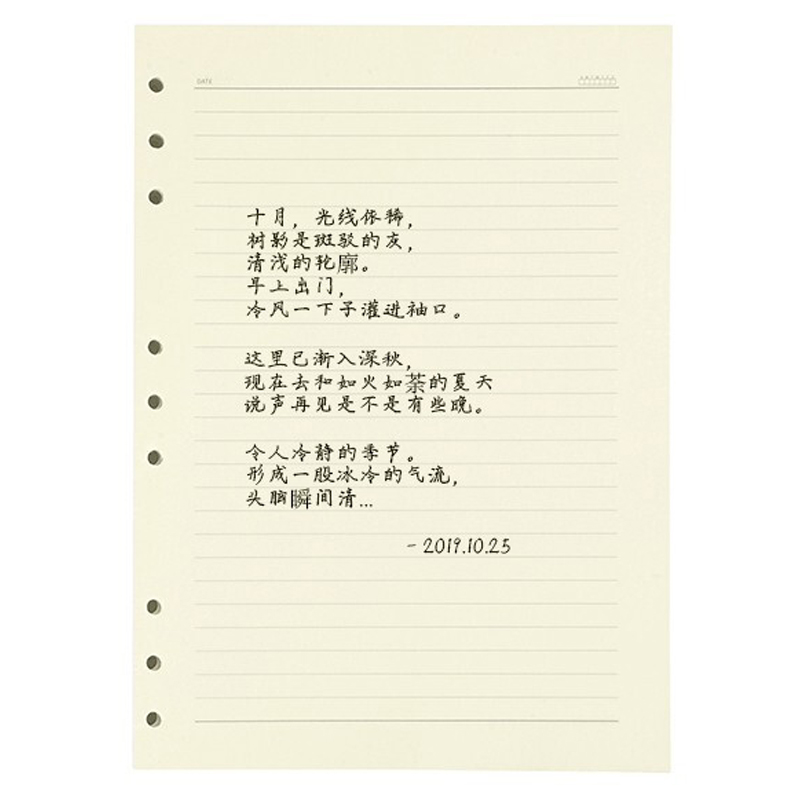 DATE
十月，光线依稀，
树影是斑驳的灰，
清浅的轮廓。
早上出门，
冷风一下子灌进袖口。
这里已渐入深秋，
现在去和如火如荼的夏天
说声再见是不是有些晚。
令人冷静的季节。
形成一股冰冷的气流，
头脑瞬间清...
- 2019.10.25